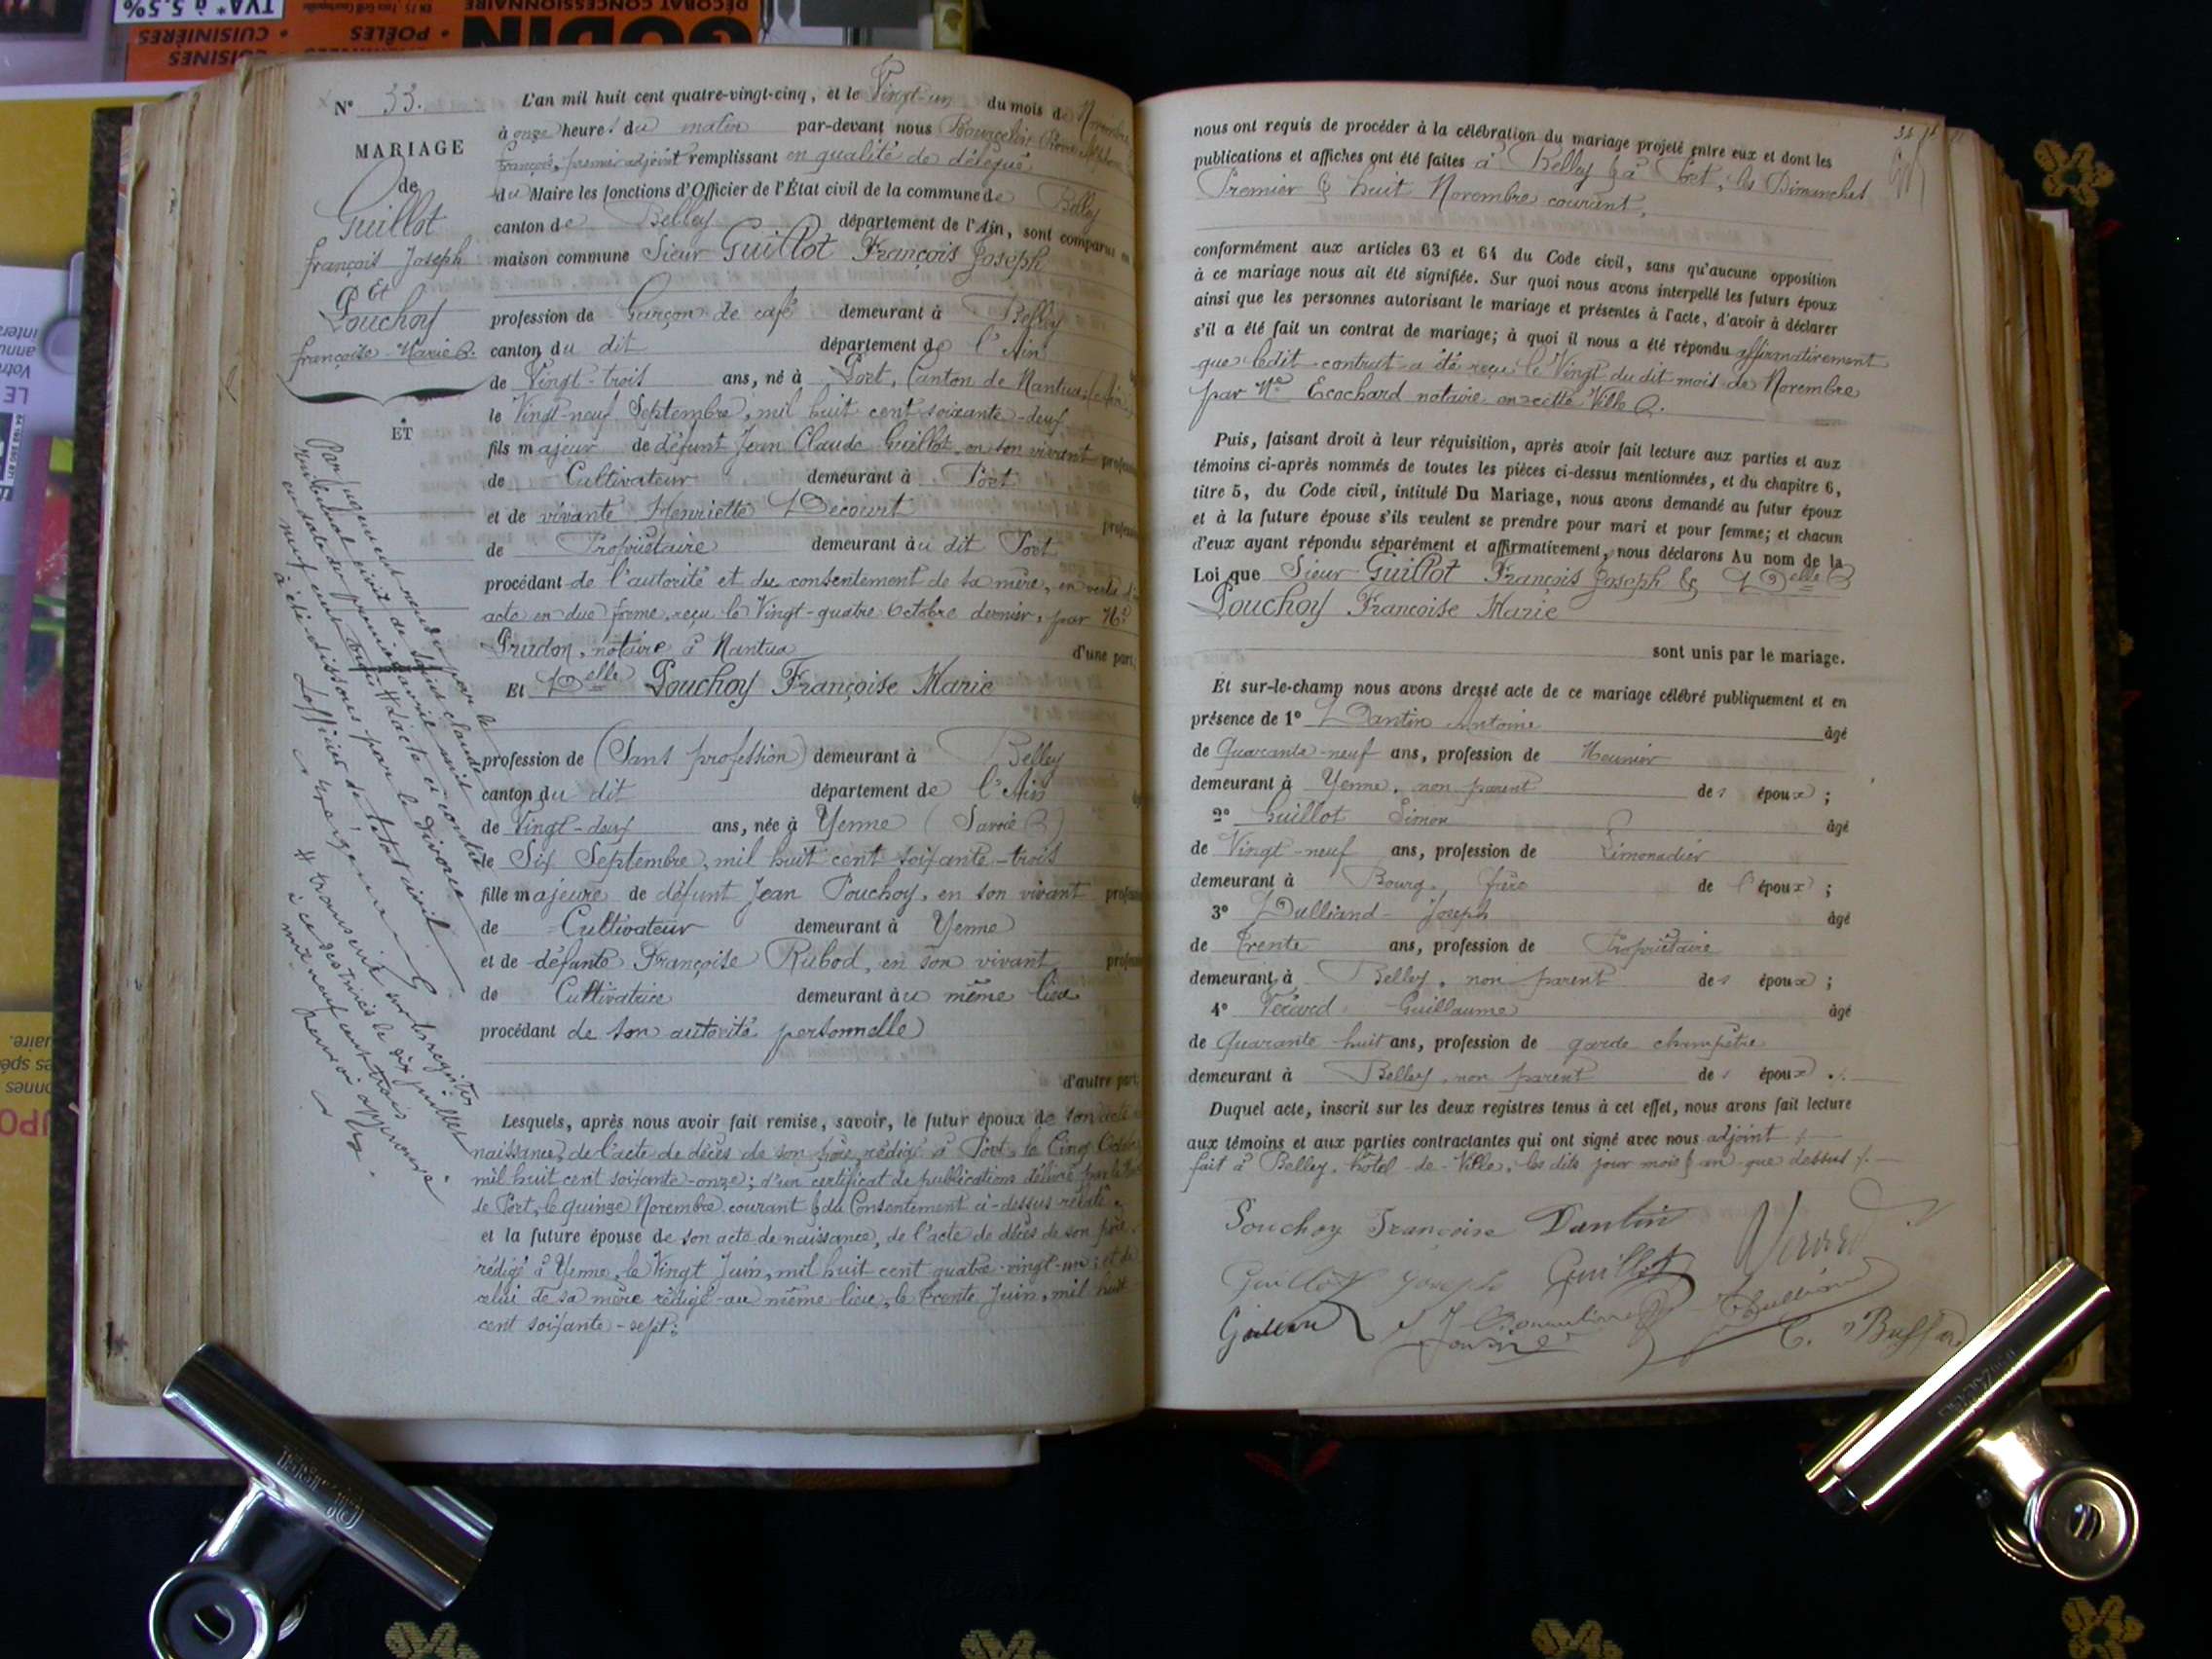 N° 33.
MARIAGE
de
Guillot
françois Joseph
Et
Pouchoy
françoise-Marie
ET
Par jugement rendu par le
tribunal civil de saint claude
en date du premier avril mil
neuf cent trois # l'acte ci-contre
a été dissous par le divorce
L'officier de l'état civil
# transcrit sur les registres
à ce destinés le dix juillet
mil neuf cent trois
Renvoi approuvé
L'an mil huit cent quatre-vingt-cinq, et le Vingt-un du mois de Novembre
à onze heures du matin par-devant nous
françois, premier adjoint remplissant en qualité de délégué
du Maire les fonctions d'Officier de l'État civil de la commune de Belley
canton de Belley département de l'Ain, sont comparus en
maison commune Sieur Guillot François Joseph
profession de Garçon de café demeurant à Belley
canton du dit département de l'Ain
de Vingt-trois ans, né à Port, Canton de Nantua (Ain)
le Vingt-neuf Septembre, mil huit cent soixante-deux
fils majeur de défunt Jean Claude Guillot, en son vivant
de Cultivateur demeurant à Port
et de vivante Henriette Decourt
de Propriétaire demeurant au dit Port
procédant de l'autorité et du consentement de sa mère, en vertu d'un
acte en due forme, reçu le Vingt-quatre Octobre dernier, par Me
Prudon, notaire à Nantua d'une part,
Et Delle Pouchoy Françoise Marie
profession de (Sans profession) demeurant à Belley
canton du dit département de l'Ain
de Vingt-deux ans, née à Yenne (Savoie)
le Six Septembre, mil huit cent soixante-trois
fille majeure de défunt Jean Pouchoy, en son vivant
de Cultivateur demeurant à Yenne
et de défunte Françoise Rubod, en son vivant
de Cultivatrice demeurant au même lieu
procédant de son autorité personnelle
d'autre part
Lesquels, après nous avoir fait remise, savoir, le futur époux de son acte
naissance, de l'acte de décès de son père, rédigé à Port, le Cinq Octobre
mil huit cent soixante-onze; d'un certificat de publications délivré par le
de Port, le quinze Novembre courant & du Consentement ci-dessus relaté.
et la future épouse de son acte de naissance, de l'acte de décès de son père
rédigé à Yenne, le Vingt Juin, mil huit cent quatre-vingt-un; et de
celui de sa mère rédigé au même lieu, le trente Juin, mil huit
cent soixante-sept;
nous ont requis de procéder à la célébration du mariage projeté entre eux et dont les
publications et affiches ont été faites à Belley & à Port, les Dimanches
Premier & huit Novembre courant,
conformément aux articles 63 et 64 du Code civil, sans qu'aucune opposition
à ce mariage nous ait été signifiée. Sur quoi nous avons interpellé les futurs époux
ainsi que les personnes autorisant le mariage et présentes à l'acte, d'avoir à déclarer
s'il a été fait un contrat de mariage; à quoi il nous a été répondu affirmativement
que ledit contrat a été reçu le Vingt du dit mois de Novembre
par Me Ecochard notaire en cette Ville.
Puis, faisant droit à leur réquisition, après avoir fait lecture aux parties et aux
témoins ci-après nommés de toutes les pièces ci-dessus mentionnées, et du chapitre 6,
titre 5, du Code civil, intitulé Du Mariage, nous avons demandé au futur époux
et à la future épouse s'ils veulent se prendre pour mari et pour femme; et chacun
d'eux ayant répondu séparément et affirmativement, nous déclarons Au nom de la
Loi que Sieur Guillot François Joseph & Delle
Pouchoy Francoise Marie
sont unis par le mariage.
Et sur-le-champ nous avons dressé acte de ce mariage célébré publiquement et en
présence de 1° Dantin Antoine âgé
de Quarante-neuf ans, profession de Meunier
demeurant à Yenne, non parent des époux;
2° Guillot Simon âgé
de Vingt-neuf ans, profession de Limonadier
demeurant à Bourg, frère de l'époux;
3° Dulliand Joseph âgé
de Trente ans, profession de Propriétaire
demeurant à Belley, non parent des époux;
4° Vérard Guillaume âgé
de Quarante-huit ans, profession de garde champêtre
demeurant à Belley, non parent des époux.
Duquel acte, inscrit sur les deux registres tenus à cet effet, nous avons fait lecture
aux témoins et aux parties contractantes qui ont signé avec nous adjoint
fait à Belley, hôtel-de-Ville, les dits jour mois & an que dessus
Pouchoy Françoise Dantin Verard
Guillot Joseph Guillot
C. Buffard
GODIN
DÉCORAT CONCESSIONNAIRE
POÊLES
CUISINIÈRES
TVA* à 5,5%